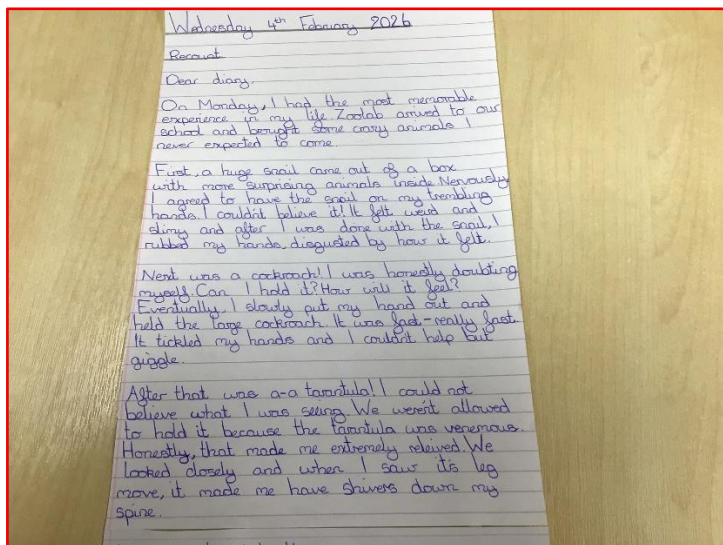 Wednesday 4th February 2026
Recount
Dear diary,
On Monday, I had the most memorable
experience in my life. Zoolab arived to our
school and brought some crazy animals I
never expected to come.
First, a huge snail came out of a box
with more surprising animals inside. Nervously,
I agreed to have the snail on my trembling
hands. I couldn't believe it! It felt weird and
slimy and after I was done with the snail, I
rubbed my hands, disgusted by how it felt.
Next was a cockroach! I was honestly doubting
myself. Can I hold it? How will it feel?
Eventually, I slowly put my hand out and
held the large cockroach. It was fast - really fast.
It tickled my hands and I couldn't help but
giggle.
After that was a-a tarantula! I could not
believe what I was seeing. We weren't allowed
to hold it because the tarantula was venemous.
Honestly, that made me extremely releived. We
looked closely and when I saw it's leg
move, it made me have shivers down my
spine.